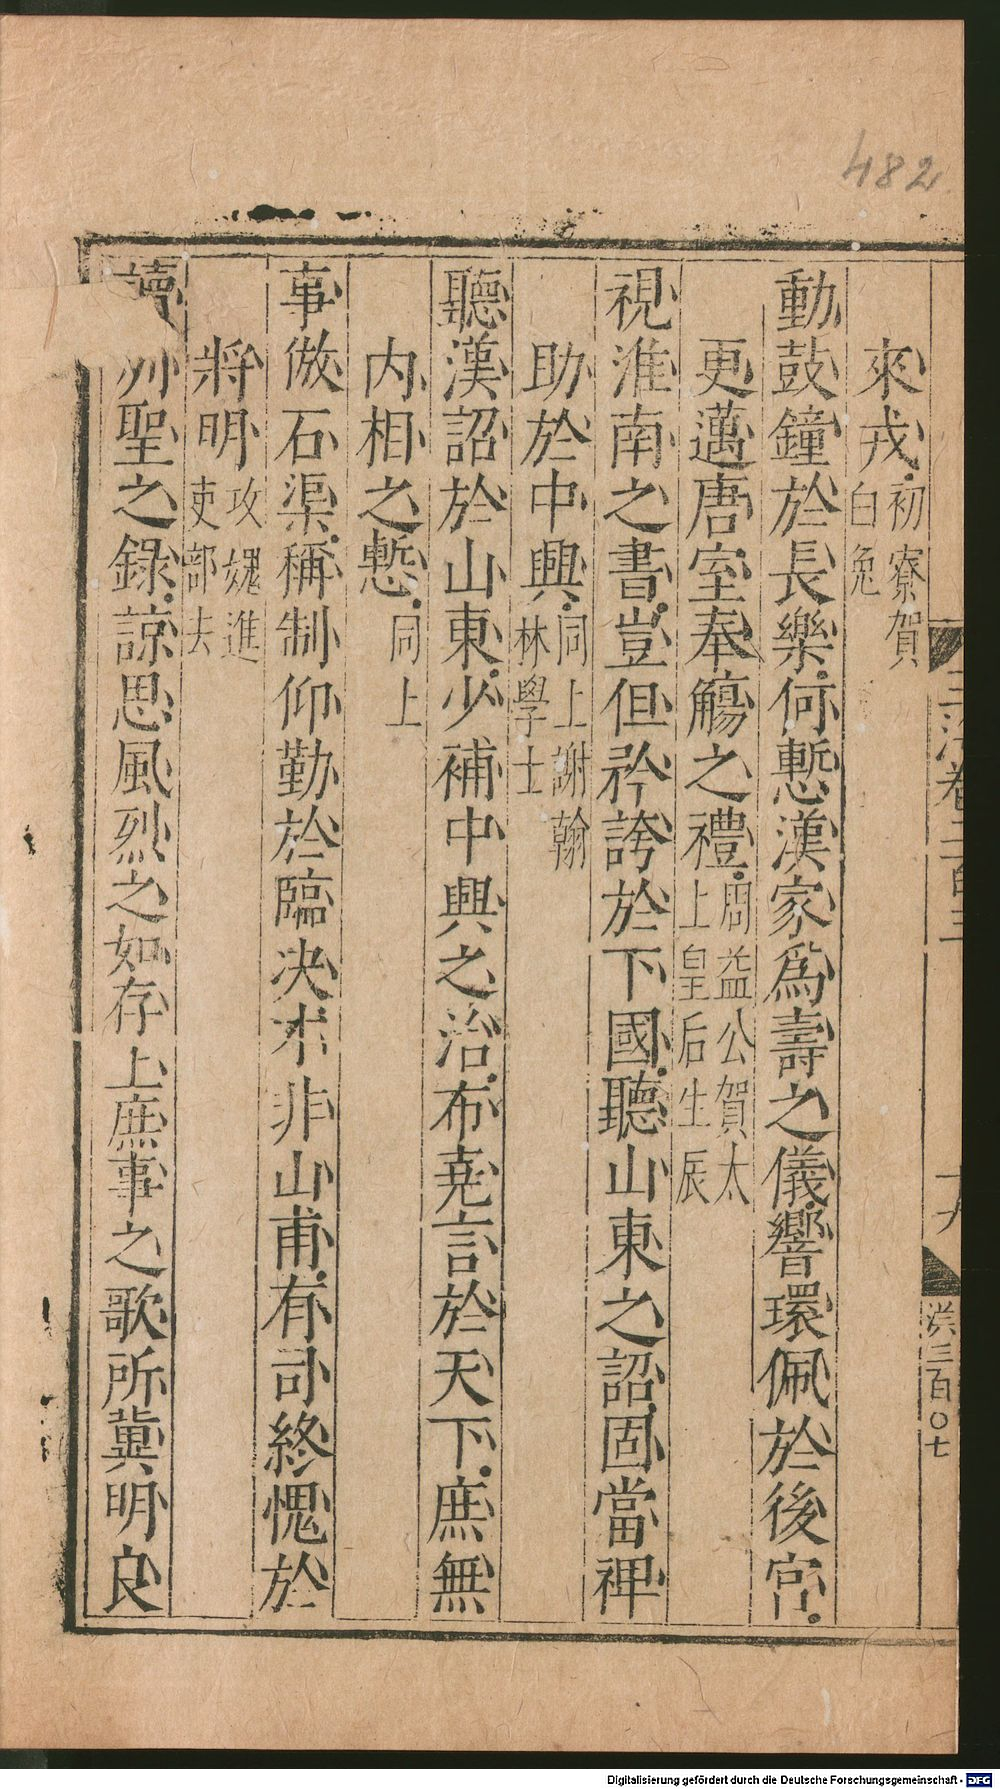 482
來戎初寮賀白兔
動鼓鐘於長樂何慙漢家爲壽之儀響環佩於後宮
更邁唐室奉觴之禮周益公賀太上皇后生辰
視淮南之書豈但矜誇於下國聽山東之詔固當裨
助於中興同上謝翰林學士
聽漢詔於山東少補中興之治布堯言於天下庶無
内相之慙同上
事倣石渠稱制仰勤於臨決才非山甫有司終愧於
將明攻媿進吏部去
讀 聖之錄諒思風烈之如存上庶事之歌所冀明良
卷二百三
十九
洪三百〇七
Digitalisierung gefördert durch die Deutsche Forschungsgemeinschaft - DFG